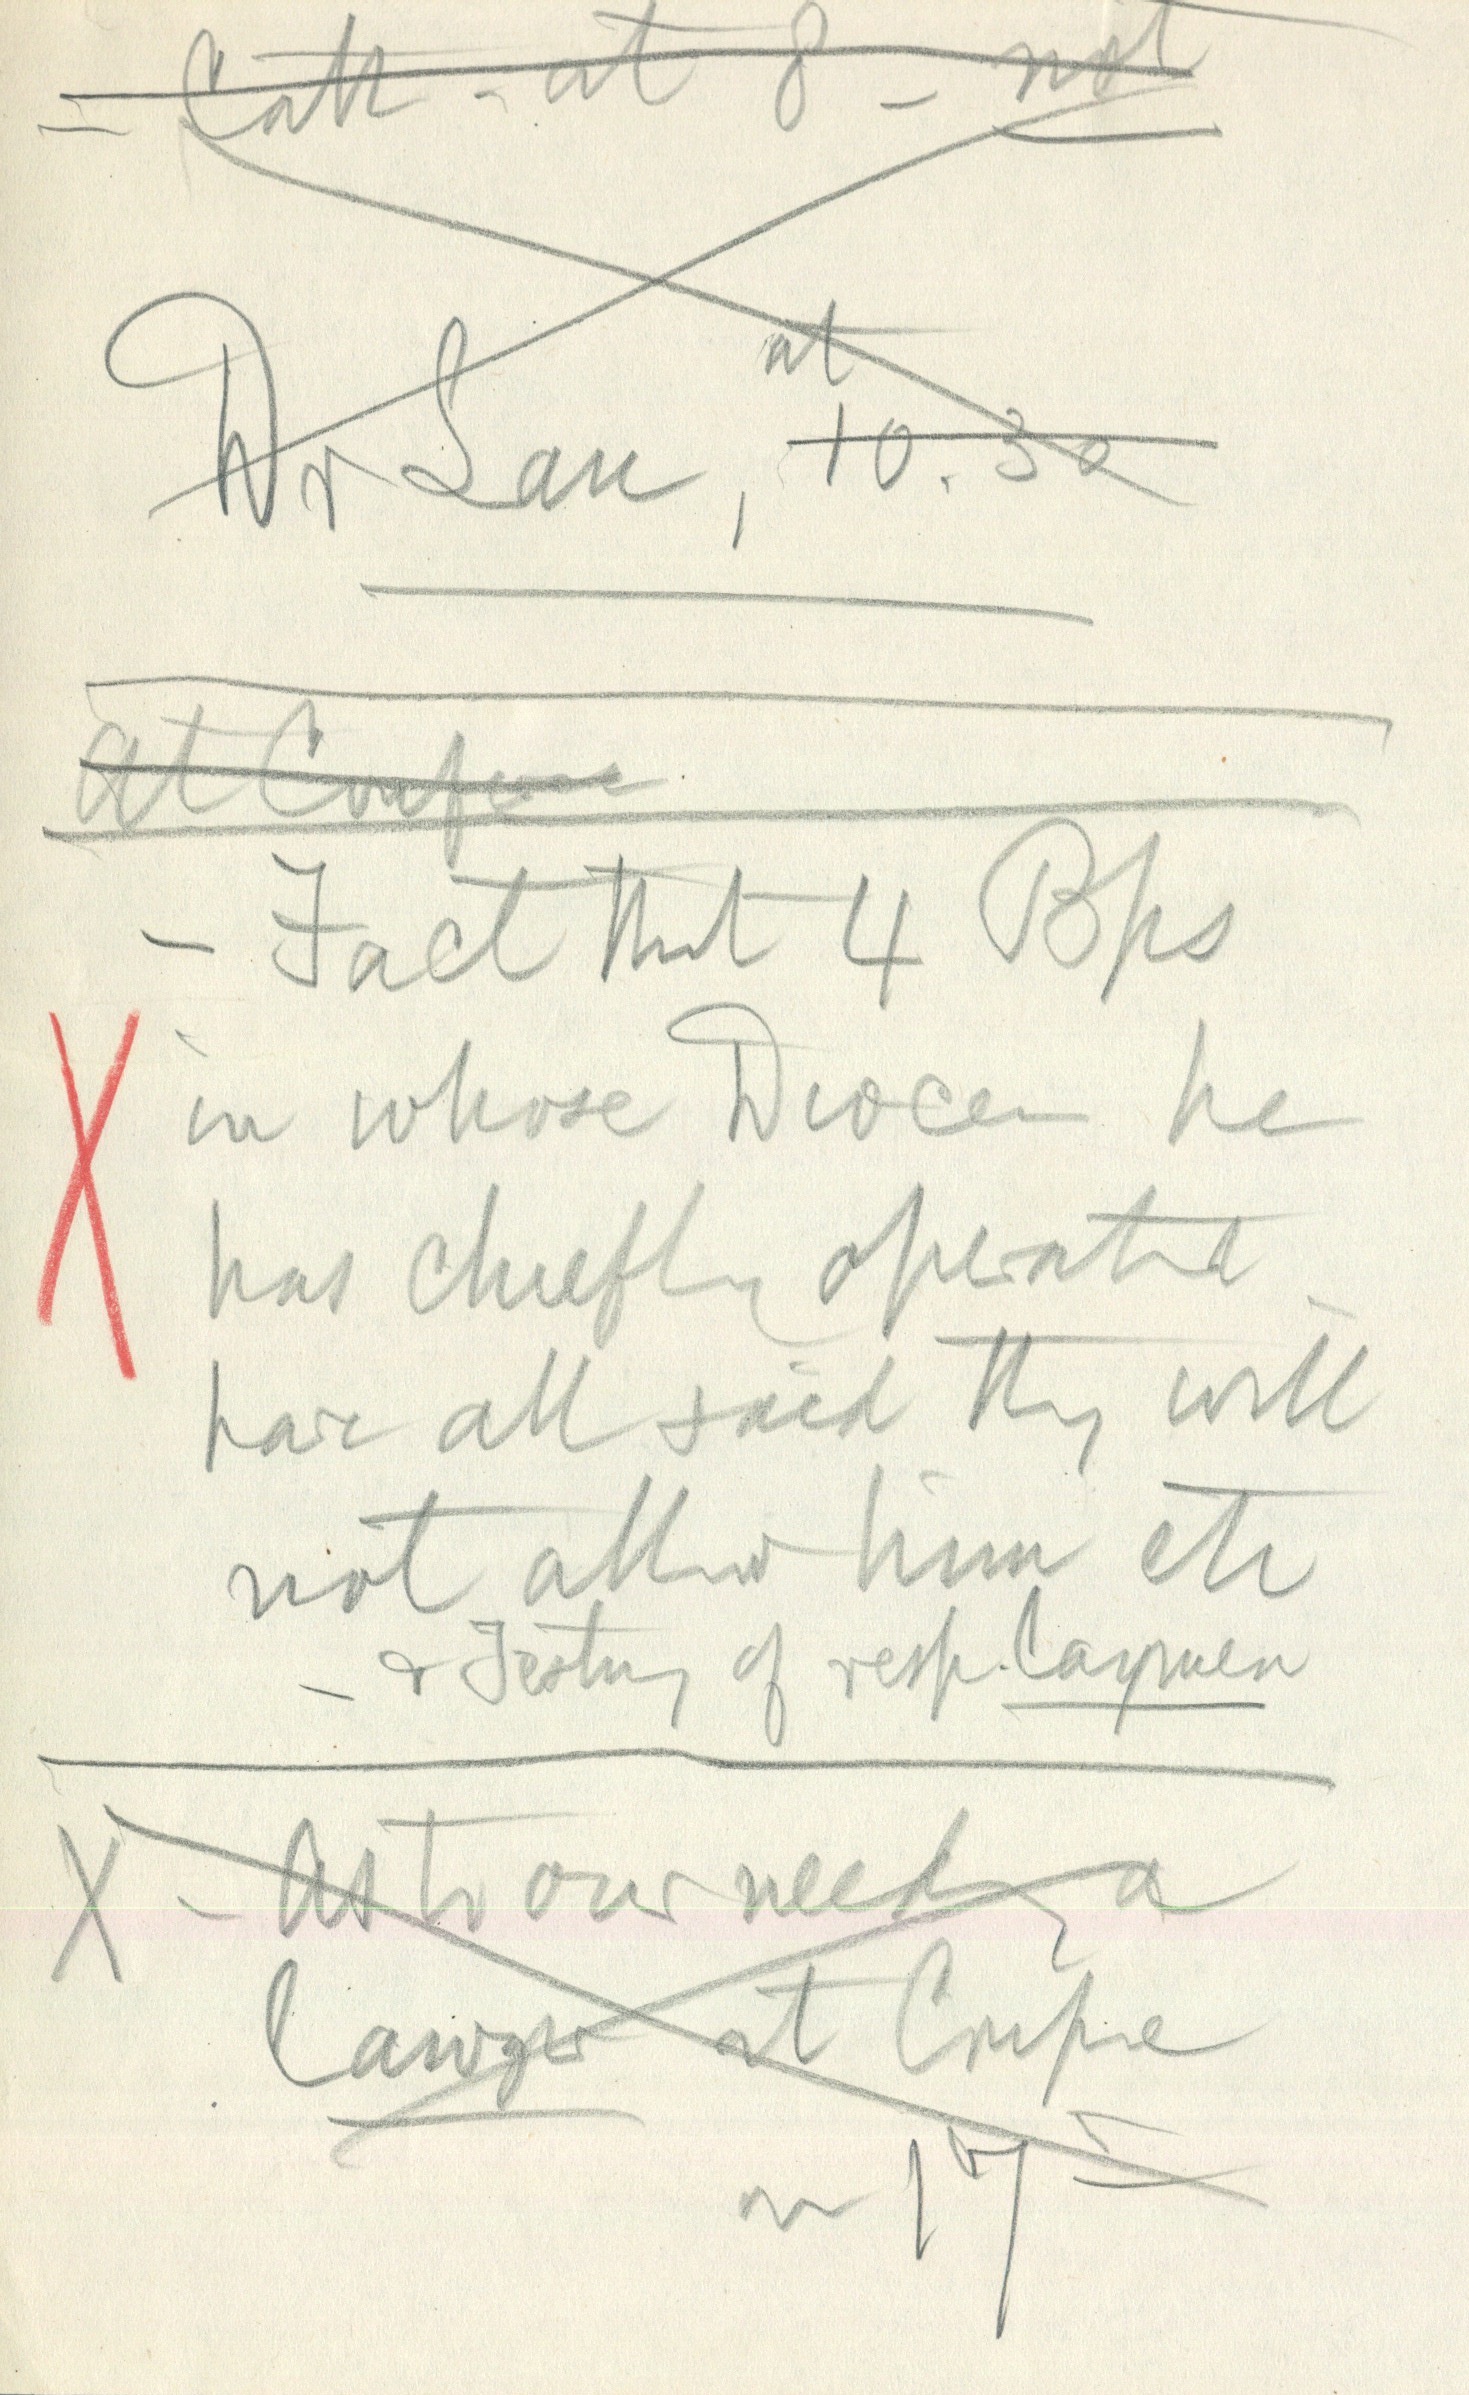 = Cath - at 8 - not
at
Dr Lau, 10.30
At Confere
- Fact that 4 Bps
X in whose Dioces he
has chiefly operated
have all said they will
not allow him etc
- & Testmy of resp. Laymen
X - As to our need of a
Lawyer at Confre
on 17